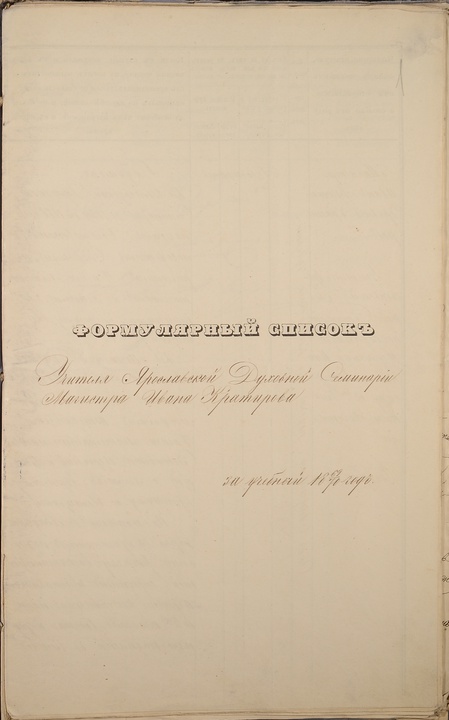 ФОРМУЛЯРНЫЙ СПИСОКЪ
Учителя Ярославской Духовной Семинаріи
Магистра Ивана Кратирова
за учебный годъ.